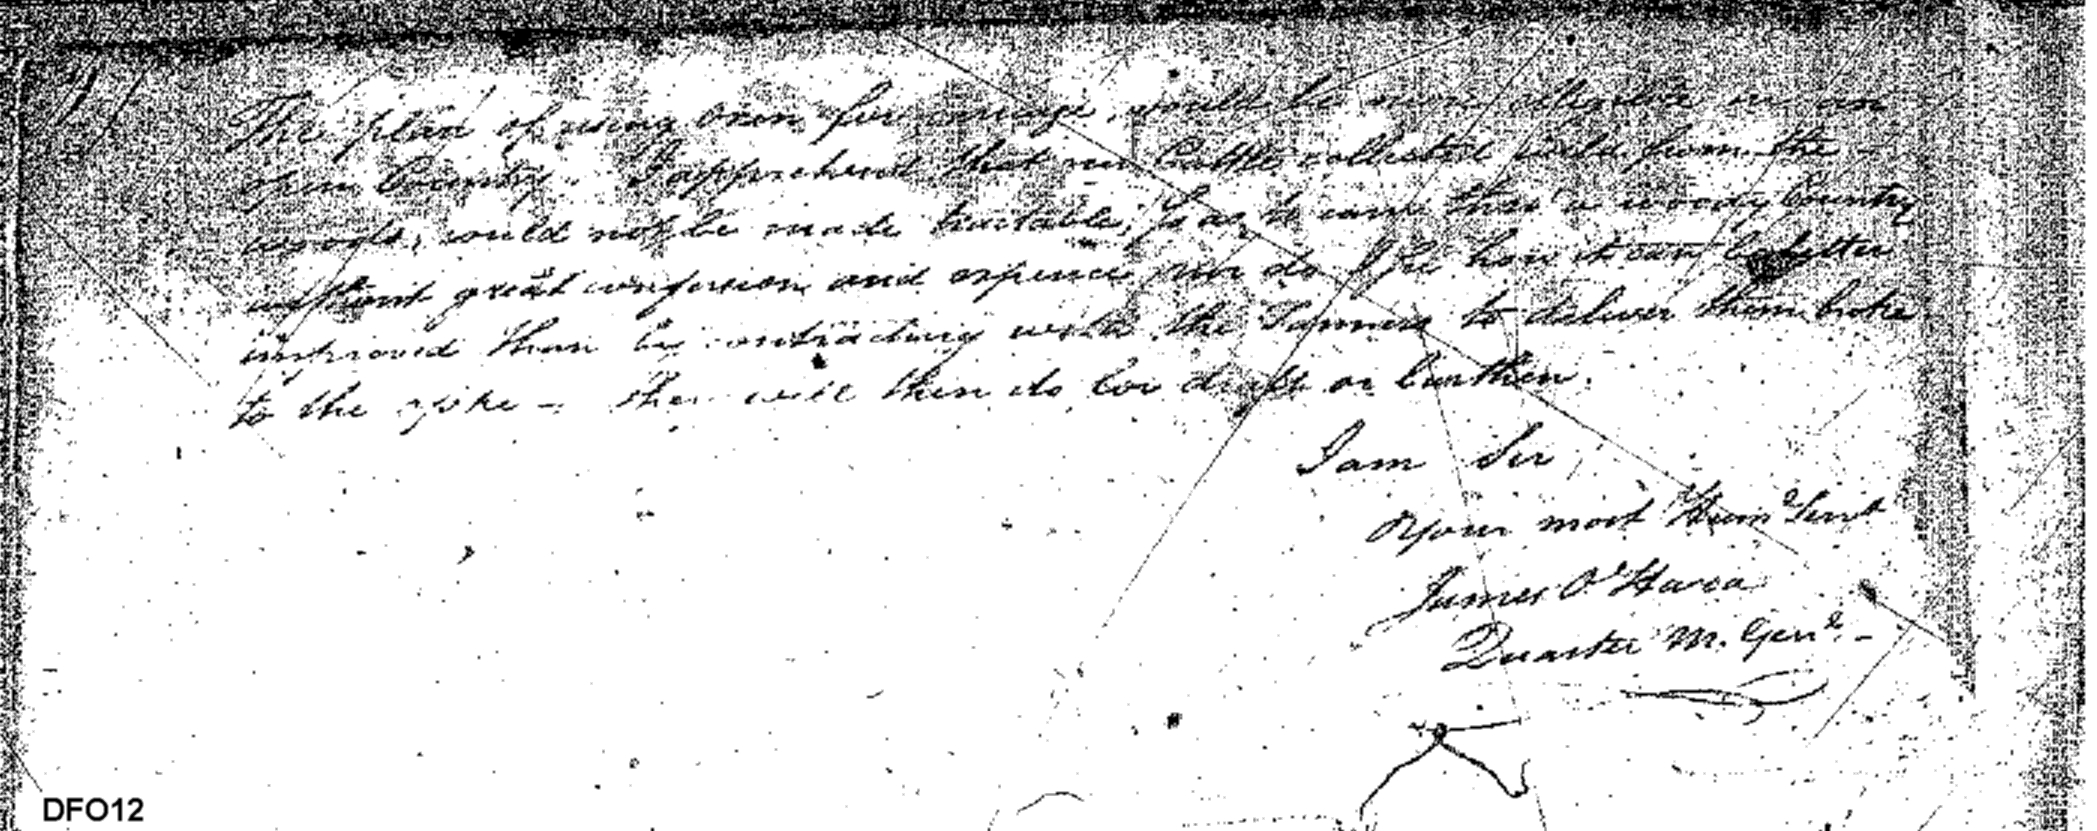 The plan of using Oxen for carriage, would be more eligible in an
open Country. I apprehend that our Cattle collected wild from the -
woods, could not be made tractable, so as to come thro' a woody Country
without great confusion and expence, nor do I see how it can be better
improved than by contracting with the Farmers to deliver them broke
to the yoke - they will then do for draft or burthen.
I am Sir
Your most Humle Servt
James O'Hara
Quarter M. Genl. -
DFO12